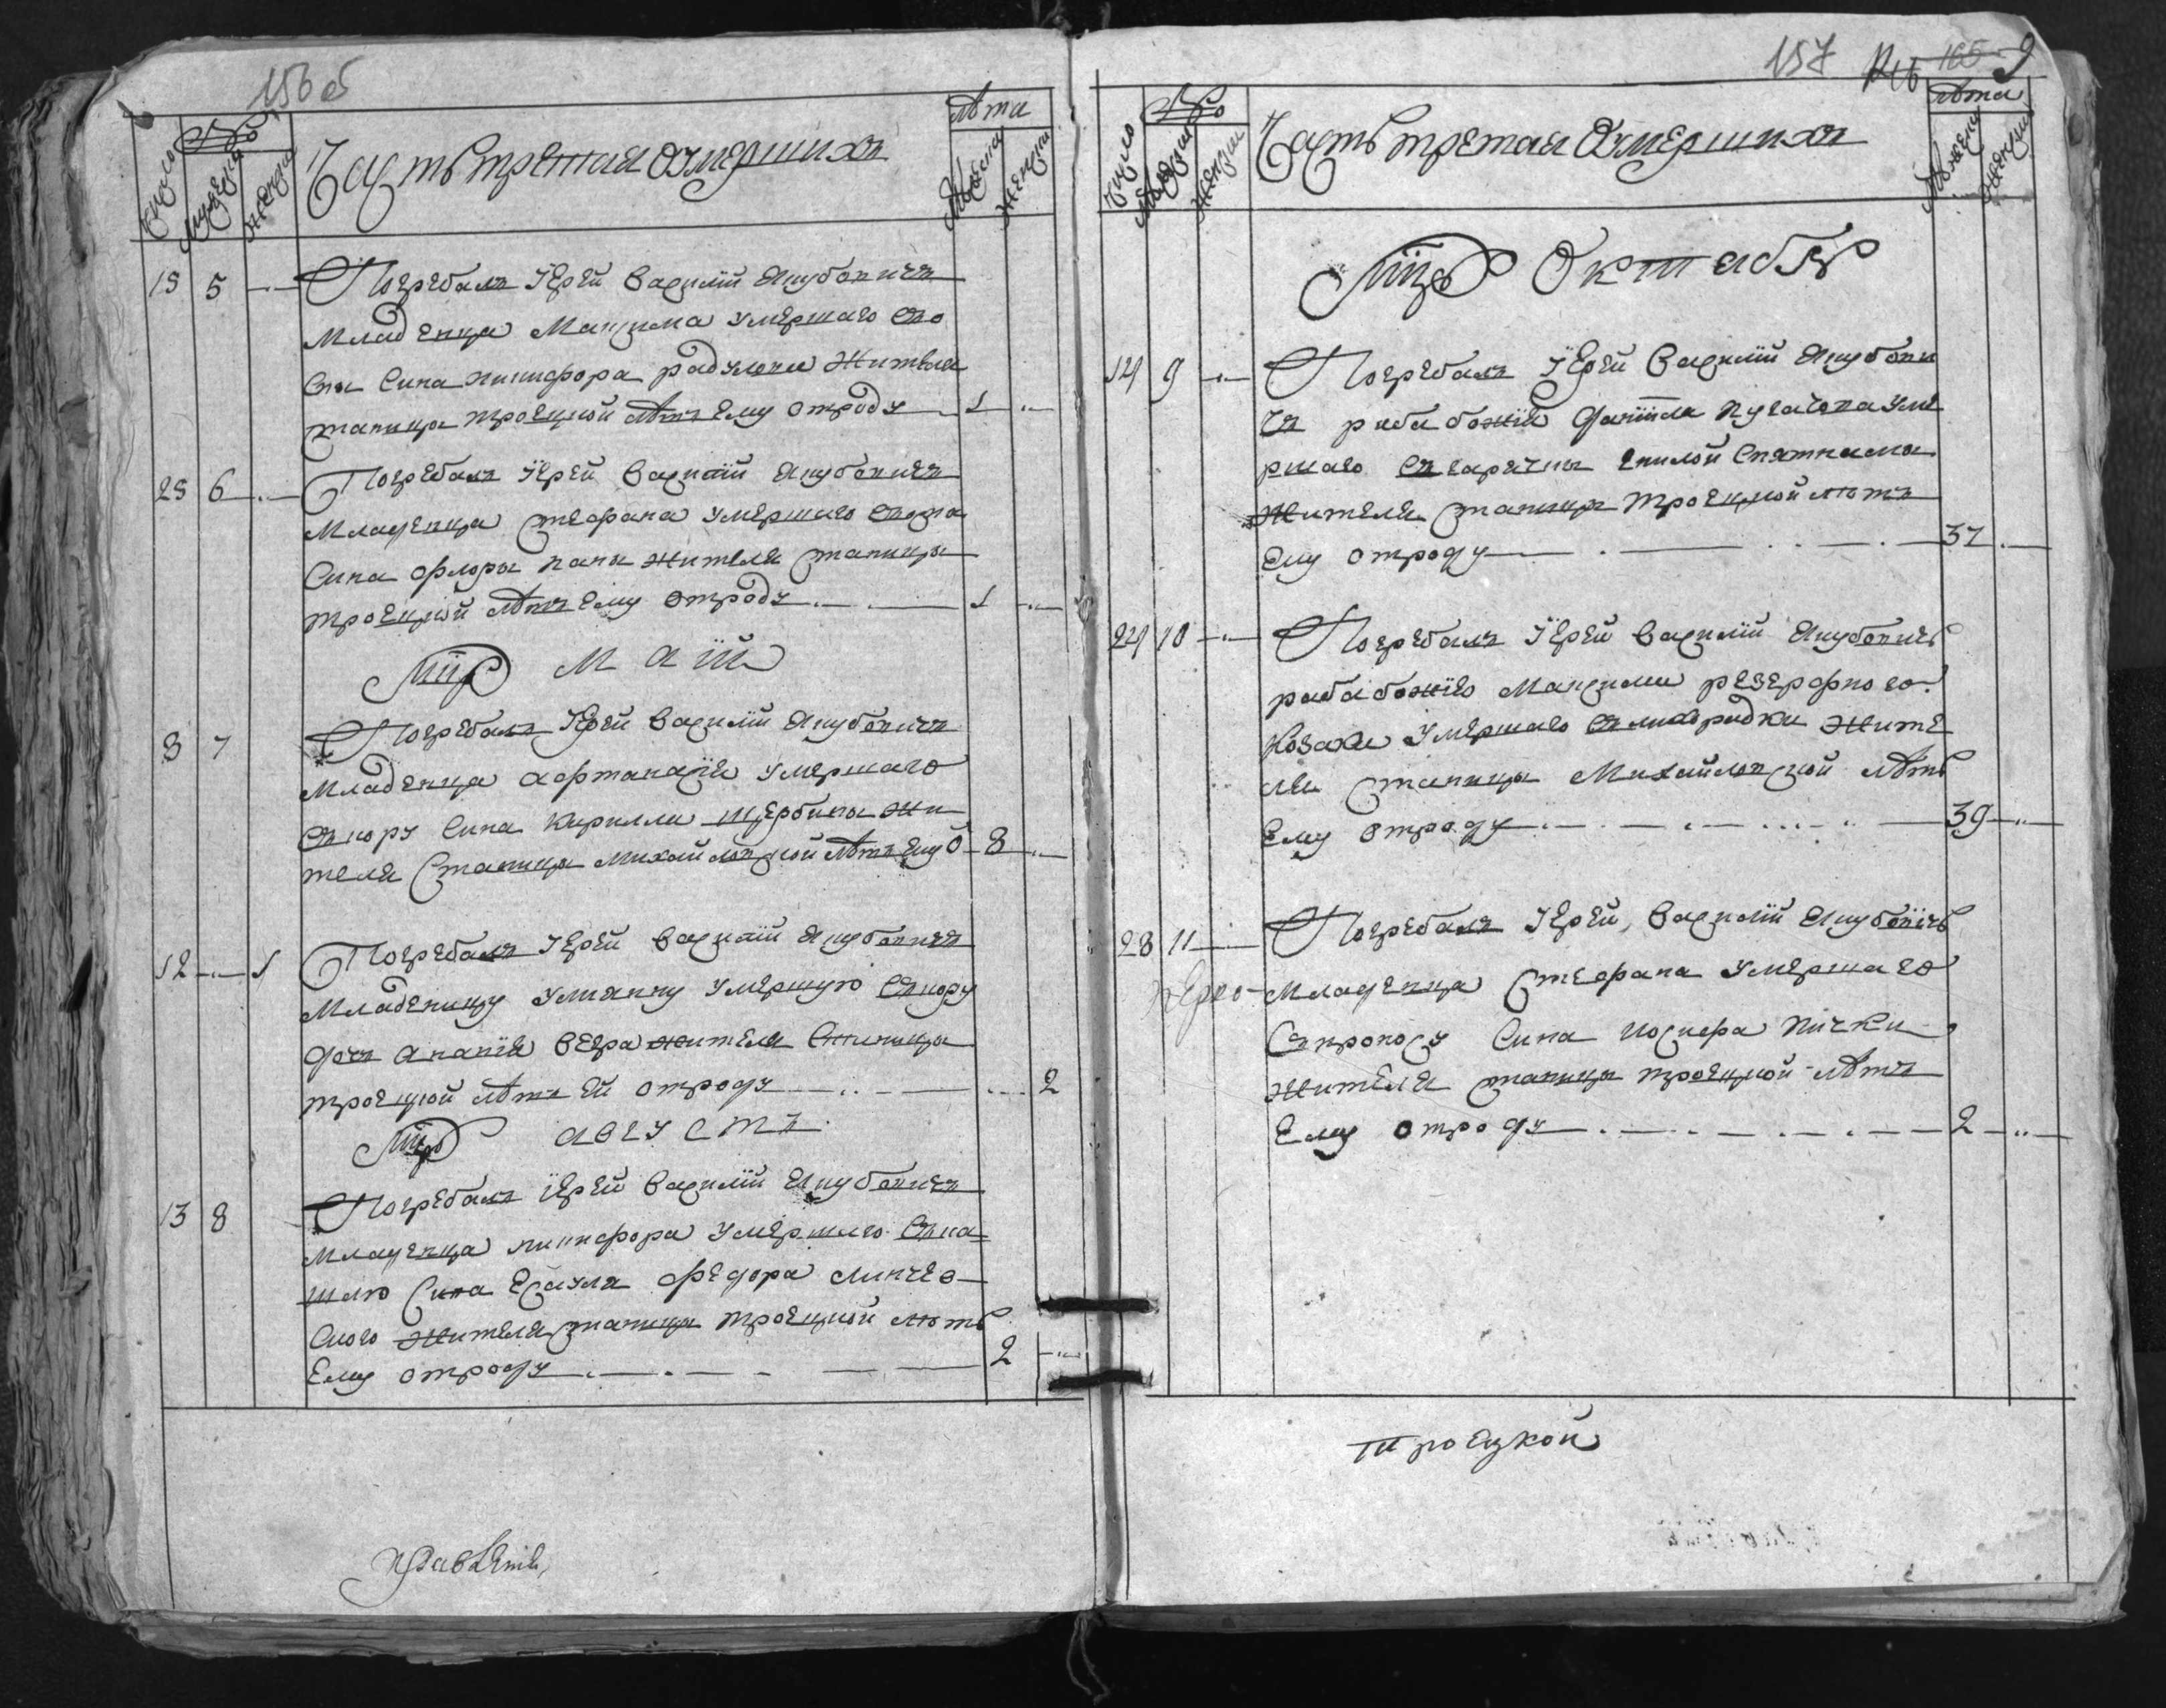 156 об
Число
№
Мужеска
Женска
Часть третая О умерших
лѣта
Мужеска
Женска
15 5 Погребалъ Іерей Василій Якубовичъ
Младенца Максима умершаго
Сина никифора радулова жителя
станицы троецкой лѣтъ ему отроду 1
25 6 Погребалъ Іерей Василій Якубовичъ
Младенца Стефана умершаго
Сина Флора жителя станицы
троецкой лѣтъ ему отроду 1
Мцъ маій
8 7 Погребалъ Іерей Василій Якубовичъ
Младенца афтанасія умершаго
Съкору Сина Кирилла щербины жи
теля Станицы михайловской лѣтъ ему 8
12 1 Погребалъ Іерей Василій Якубовичъ
Младеницу умершую Съкору
дочъ ананія жителя Станицы
троецкой лѣтъ ей отроду 2
Мцъ августъ
13 8 Погребалъ Іерей Василій Якубовичъ
младенца никифора умершаго Съка
шлю Сина Есаула федора
Ского жителя станицы троецкой лѣтъ
Ему отроду 2
157 165 9
Число
№
Мужеска
Женска
Часть третая О умерших
лѣта
Мужеска
Женска
Мцъ Октябрь
14 9 Погребалъ Іерей Василій Якубови
чъ раба божія даніила пугачова уме
ршаго Съгарячки гнилой Спятнами
жителя станицы троецкой лѣтъ
Ему отроду 37
24 10 Погребалъ Іерей Василій Якубовичъ
раба божіго Максима резерфного
козака умершаго Слихорадки жите
ля Станицы Михайловской лѣтъ
Ему отроду 39
28 11 Погребалъ Іерей Василій Якубовичъ
младенца Стефана умершаго
Съкроносу Сина иосифа пички
жителя станицы троецкой лѣтъ
Ему отроду 2
троецкой